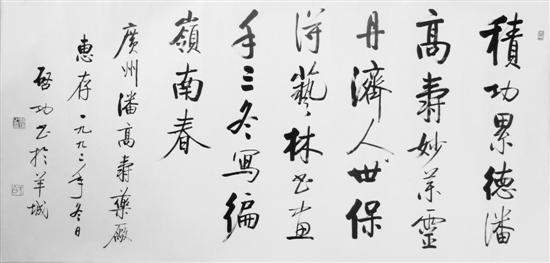 積功累德潘
高壽妙藥靈
丹濟人世保
得藝林書畫
手三冬寫徧
嶺南春
廣州潘高壽藥廠
惠存一九九二年冬日
啓功書於羊城